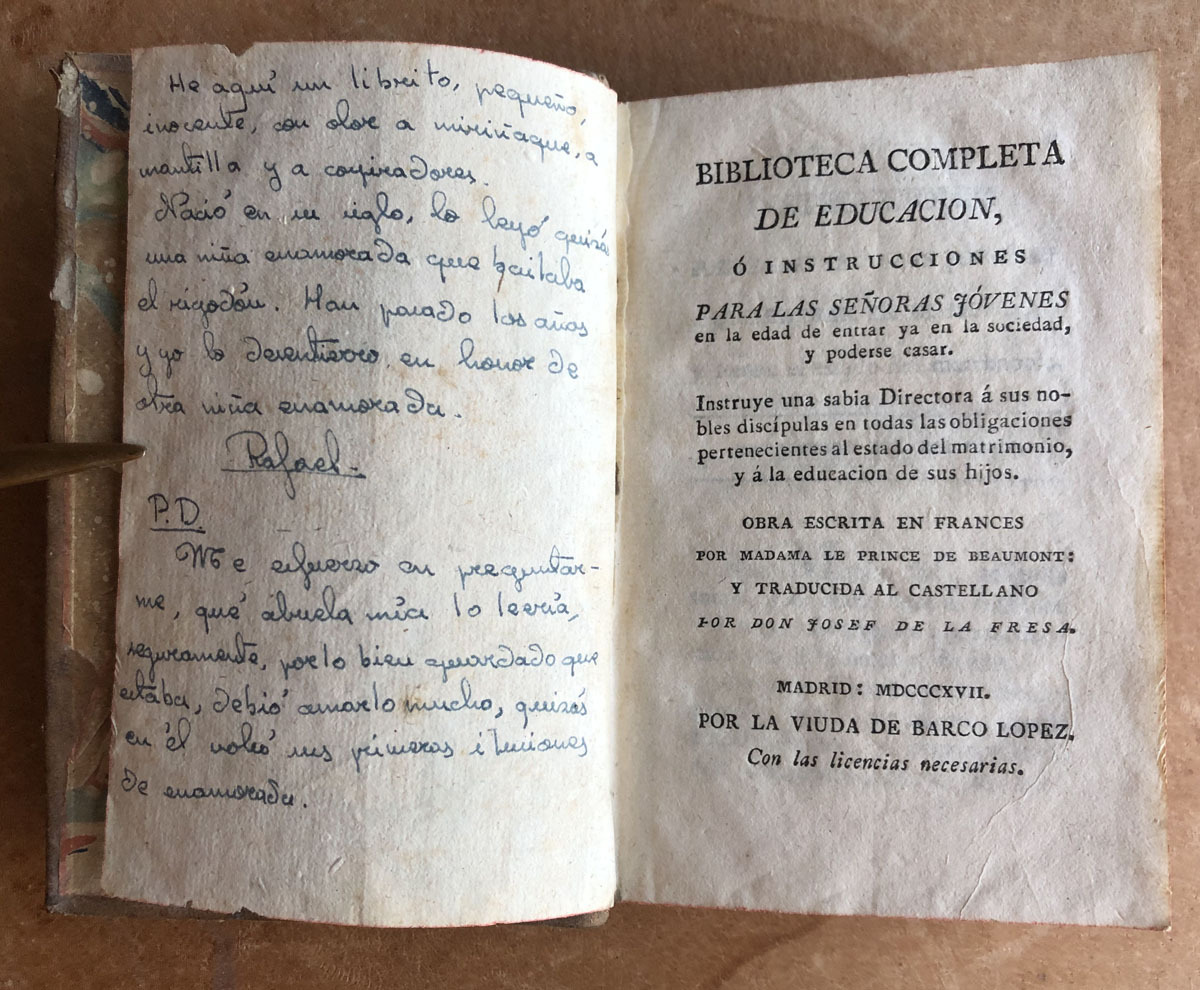 He aquí un librito, pequeño,
inocente, con olor a miriñaque, a
mantilla y a conspiradores.
Nació en su siglo, lo leyó quizás
una niña enamorada que bailaba
el rigodón. Han pasado los años
y yo lo desentierro en honor de
otra niña enamorada.
Rafael-
P.D.
Me esfuerzo en preguntar-
me, qué abuela mía lo leería,
seguramente, por lo bien guardado que
estaba, debió amarlo mucho, quizás
en él volcó sus primeras
de enamorada.
BIBLIOTECA COMPLETA
DE EDUCACION,
Ó INSTRUCCIONES
PARA LAS SEÑORAS JÓVENES
en la edad de entrar ya en la sociedad,
y poderse casar.
Instruye una sabia Directora á sus no-
bles discípulas en todas las obligaciones
pertenecientes al estado del matrimonio,
y á la educacion de sus hijos.
OBRA ESCRITA EN FRANCES
POR MADAMA LE PRINCE DE BEAUMONT:
Y TRADUCIDA AL CASTELLANO
POR DON JOSEF DE LA FRESA.
MADRID: MDCCCXVII.
POR LA VIUDA DE BARCO LOPEZ.
Con las licencias necesarias.